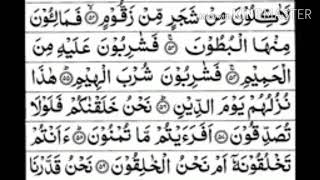 لَاٰكِلُوْنَ مِنْ شَجَرٍ مِّنْ زَقُّوْمٍ ۙ﴿۵۲﴾ فَمَالِـُٔوْنَ
مِنْهَا الْبُطُوْنَ ۚ﴿۵۳﴾ فَشٰرِبُوْنَ عَلَيْهِ مِنَ
الْحَمِيْمِ ۚ﴿۵۴﴾ فَشٰرِبُوْنَ شُرْبَ الْهِيْمِ ؕ﴿۵۵﴾ هٰذَا
نُزُلُهُمْ يَوْمَ الدِّيْنِ ؕ﴿۵۶﴾ نَحْنُ خَلَقْنٰكُمْ فَلَوْلَا
تُصَدِّقُوْنَ ﴿۵۷﴾ اَفَرَءَيْتُمْ مَّا تُمْنُوْنَ ؕ﴿۵۸﴾ ءَاَنْتُمْ
تَخْلُقُوْنَهٗۤ اَمْ نَحْنُ الْخٰلِقُوْنَ ﴿۵۹﴾ نَحْنُ قَدَّرْنَا